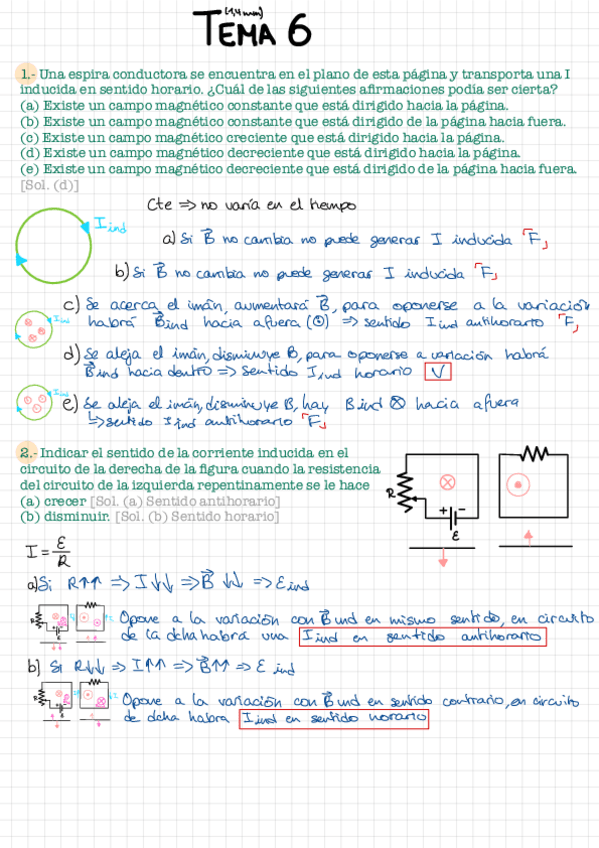 (1,4 mm)
TEMA 6
1.- Una espira conductora se encuentra en el plano de esta página y transporta una I
inducida en sentido horario. ¿Cuál de las siguientes afirmaciones podía ser cierta?
(a) Existe un campo magnético constante que está dirigido hacia la página.
(b) Existe un campo magnético constante que está dirigido de la página hacia fuera.
(c) Existe un campo magnético creciente que está dirigido hacia la página.
(d) Existe un campo magnético decreciente que está dirigido hacia la página.
(e) Existe un campo magnético decreciente que está dirigido de la página hacia fuera.
[Sol. (d)]
Cte ⇒ no varía en el tiempo
I ind
a) Si B⃗ no cambia no puede generar I inducida "F"
b) Si B⃗ no cambia no puede generar I inducida "F"
c) Se acerca el imán, aumentará B⃗, para oponerse a la variación
habrá B⃗ind hacia afuera (⊙) ⇒ sentido I ind antihorario "F"
d) Se aleja el imán, disminuye B, para oponerse a variación habrá
B⃗ind hacia dentro ⇒ sentido I ind horario V
e) Se aleja el imán, disminuye B, hay B ind ⊗ hacia afuera
↳ sentido I ind antihorario "F"
2.- Indicar el sentido de la corriente inducida en el
circuito de la derecha de la figura cuando la resistencia
del circuito de la izquierda repentinamente se le hace
(a) crecer [Sol. (a) Sentido antihorario]
(b) disminuir. [Sol. (b) Sentido horario]
R
+ -
ε
I = ε/R
a) Si R↑↑ ⇒ I↓↓ ⇒ B⃗ ↓↓ ⇒ ε ind
Opone a la variación con B⃗ ind en mismo sentido, en circuito
de la dcha habrá una I ind en sentido antihorario
b) Si R↓↓ ⇒ I↑↑ ⇒ B⃗↑↑ ⇒ ε ind
Opone a la variación con B⃗ ind en sentido contrario, en circuito
de dcha habra I ind en sentido horario